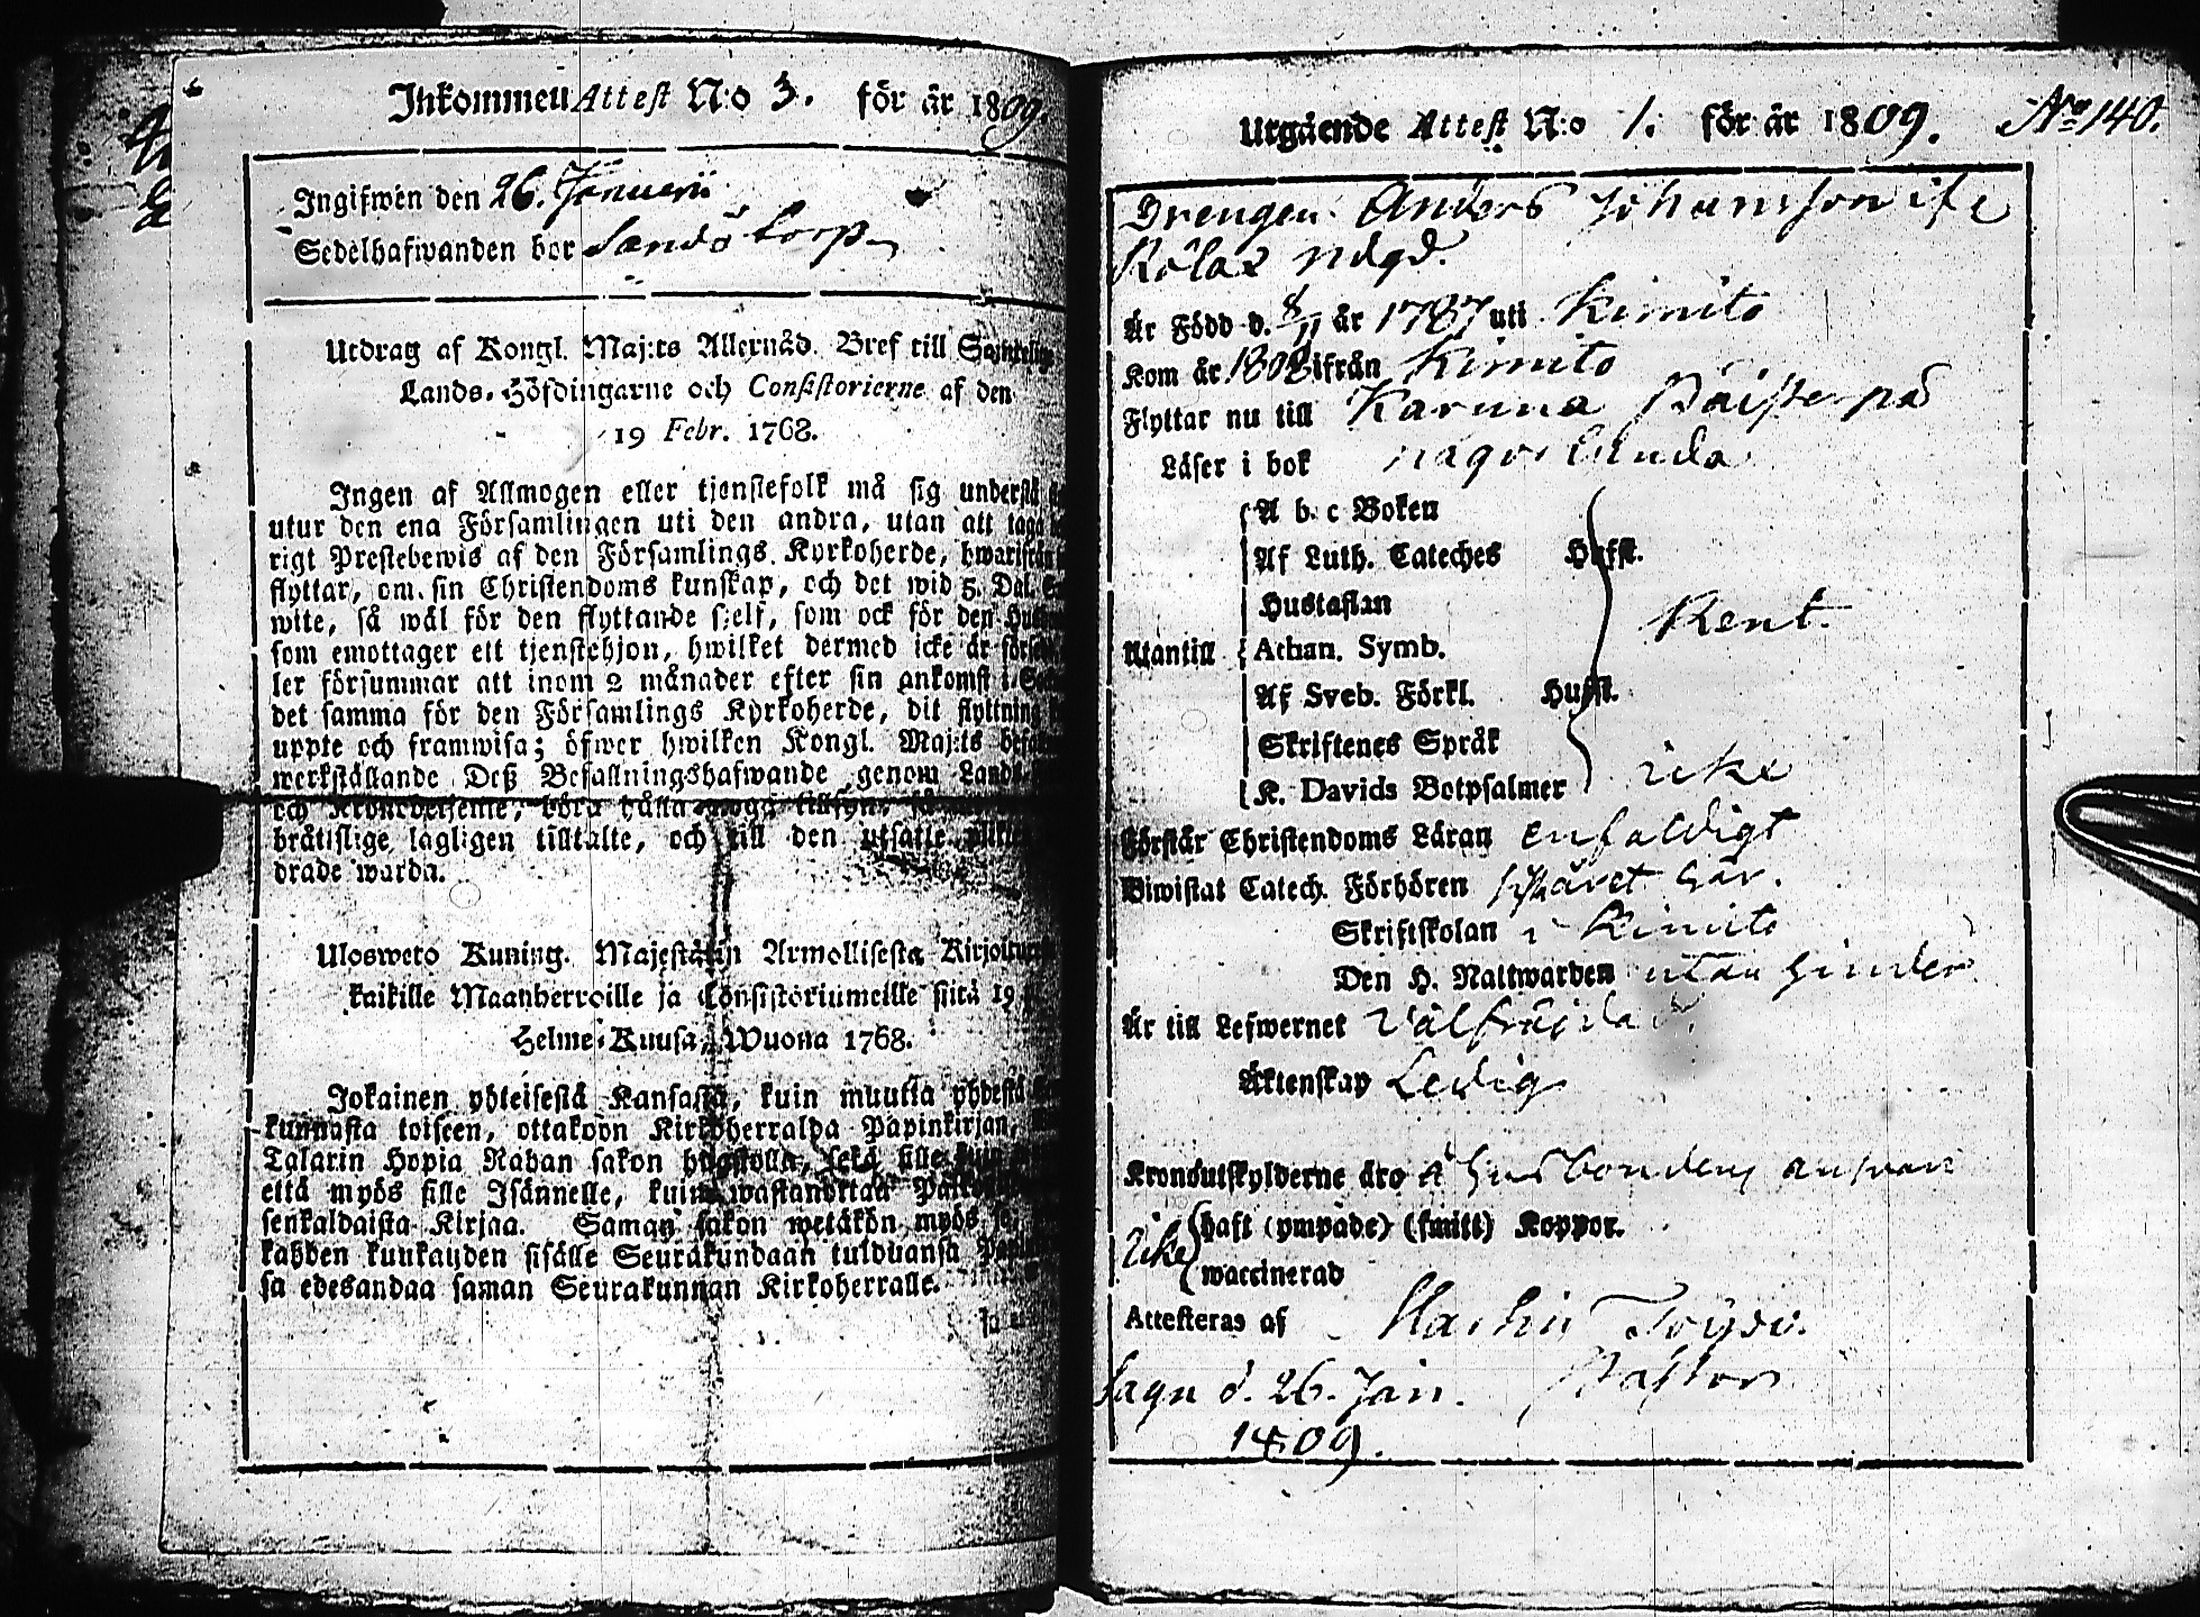 Inkommen Attest N:o 3. för år 1809.
Ingifwen den 26. Januarii
Sedelhafwanden bor Sandö torp
Utdrag af Kongl. Maj:ts Allernåd. Bref till
Lands-Höfdingarne och Consistorierne af den
19 Febr. 1768.
Ingen af Allmogen eller tjenstefolk må sig understå
utur den ena Församlingen uti den andra, utan att taga
rigt Prestebewis af den Församlings Kyrkoherde,
flyttar, om sin Christendoms kunskap, och det wid 5. Dal.
wite, så wäl för den flyttande sjelf, som ock för den
som emottager ett tjenstehjon, hwilket dermed icke är
ler försummar att inom 2 månader efter sin ankomst i
det samma för den Församlings Kyrkoherde, dit flyttning
uppte och framwisa; öfwer hwilken Kongl. Maj:ts
werkställande Deß Befallningshafwande genom
och böra hålla noga tillsyn,
bråtslige lagligen tilltalte, och till den utsatte
drade warda.
Ulosweto Kuning. Majestätin Armollisesta
kaikille Maanherroille ja Consistoriumeille siitä 19
Helme-Kuusa, Wuona 1768.
Jokainen yhteisestä Kansasta, kuin muutta yhdestä
kunnasta toiseen, ottakoon Kirkoherralda Papinkirjan,
Talarin Hopia Rahan sakon
että myös sille Isännelle, kuin wastanottaa
senkaldaista Kirjaa. Saman sakon wetäkön myös
kahden kuukauden sisälle Seurakundaan tulduansa
sa edesandaa saman Seurakunnan Kirkoherralle.
Utgående Attest N:o 1. för år 1809. No 140.
Drengen Anders Johansson ifr
Rölax
Är Född d. 8/11 år 1787 uti Kimito
Kom år 1808 ifrån Kimito
Flyttar nu till Karuna Päiste på
Läser i bok
A b c Boken
Af Luth. Cateches Hufst.
Hustaflan
Rent.
Utantill Athan. Symb.
Af Sveb. Förkl. Hufst.
Skriftenes Språk
K. Davids Botpsalmer icke
Förstår Christendoms Läran enfaldigt
Biwistat Catech. Förhören här.
Skriftskolan i Kimito
Den H. Nattwarden utan hinder
Är till Lefwernet Välfräjdad
Äktenskap Ledig
Kronoutskylderne äro å husbondens answar
icke haft (ympade) (smitt) Koppor.
waccinerad
Attesteras af
Pastor
Sagu d. 26. Jan.
1809.